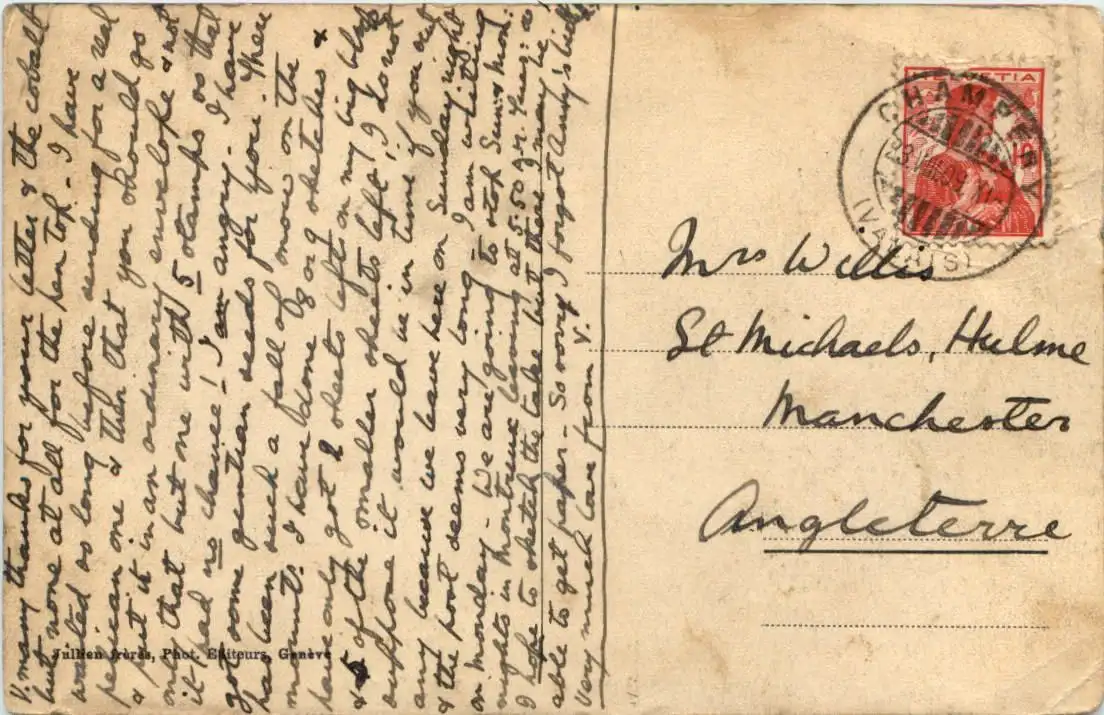 V. many thanks for your letter & the cobalt
but none at all for the pen top - I have
waited so long before sending for a real
pelican one & then that you should go
& put it in an ordinary envelope & not
only that but one with 5 stamps so that
it had no chance! I am angry. I have
got some gentian seeds for you. There
has been such a fall of snow on the
mounts. I have done 8 or 9 sketches &
have only got 2 sheets left on my big block
& 5 of the smaller sheets left, I do not
suppose it would be in time if you sent
any because we leave here on Sunday night
& the post deems very long - I am writing
on Monday - We are going to stop Sun. & Mon.
nights in Montreux leaving at 5.50 Tues: as
I hope to sketch the lake but there may be
able to get paper - So sorry I forgot Andy's bill
Very much love from V.
Jullien frères, Phot. Editeurs, Genève
HELVETIA
CHAMPÉRY
(VALAIS)
Mrs Willis
St Michaels, Hulme
Manchester
Angleterre